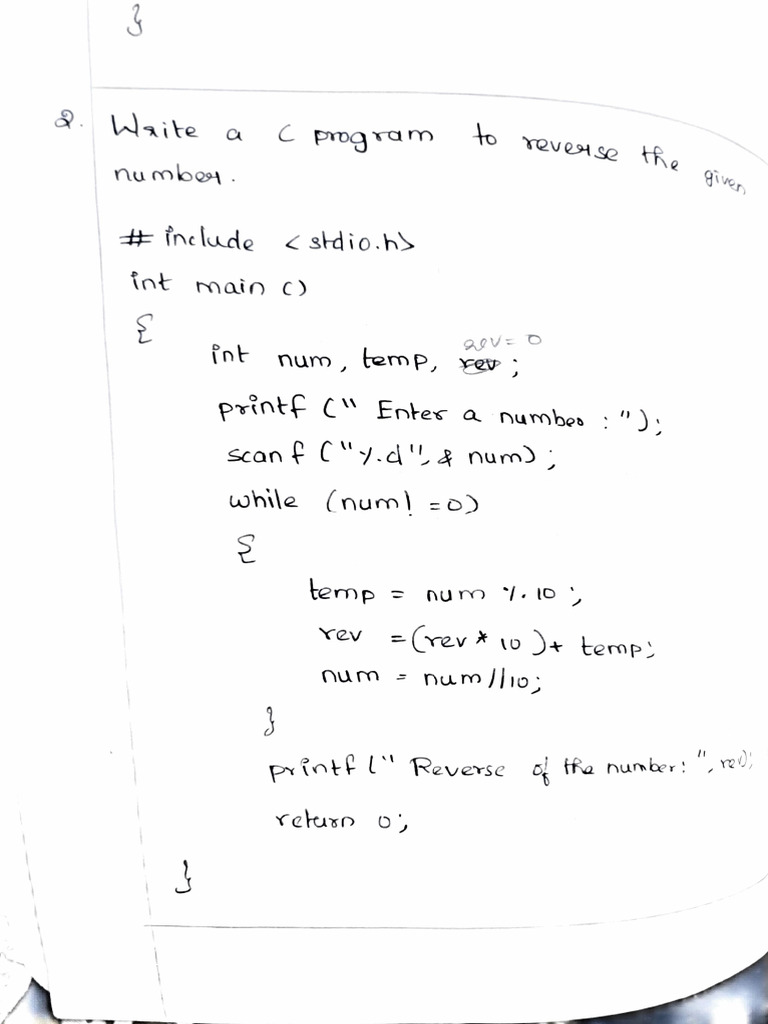 }
2. Write a C program to reverse the given
number.
# include <stdio.h>
int main ()
{
rev = 0
int num, temp, rev ;
printf (" Enter a number : ");
scanf ("%d", & num) ;
while (num! =0)
{
temp = num % 10 ;
rev = (rev * 10 ) + temp;
num = num //10;
}
printf (" Reverse of the number: ", rev);
return 0;
}